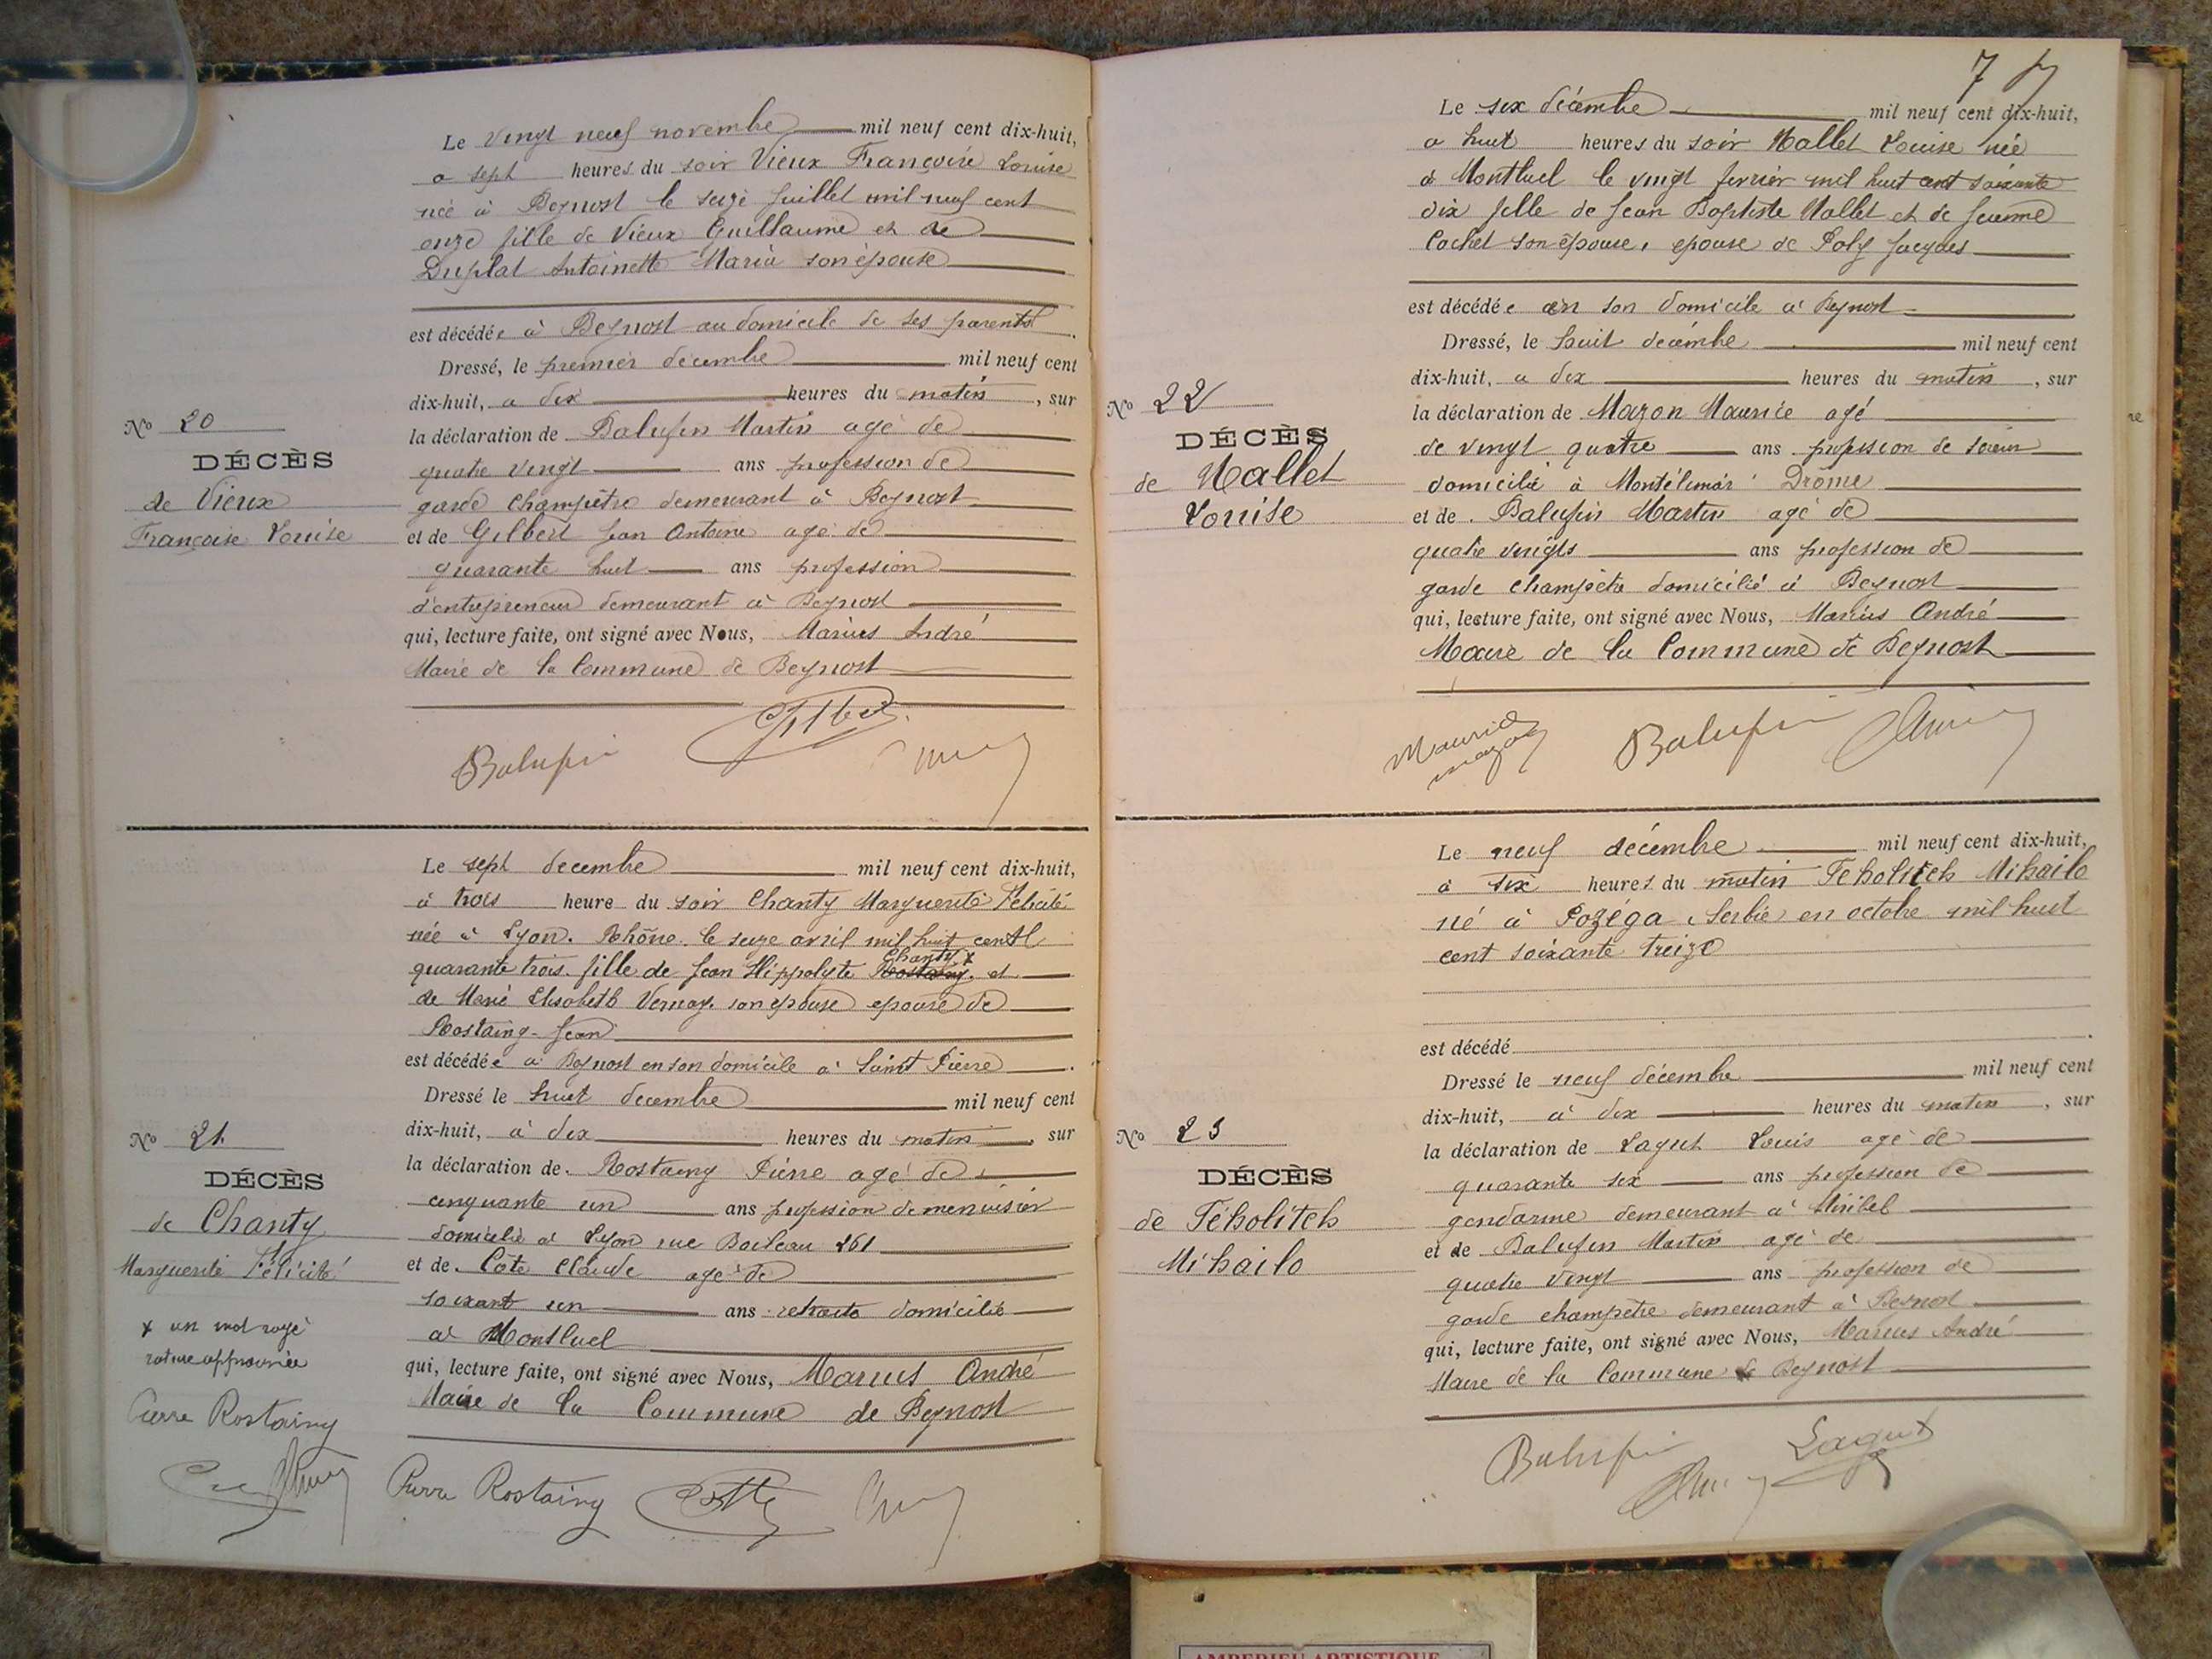 Le vingt neuf novembre mil neuf cent dix-huit,
a sept heures du soir Vieux Françoise Louise
née à Beynost le seize juillet mil neuf cent
onze fille de Vieux Guillaume et de
Duplat Antoinette Maria son épouse
est décédée à Beynost au domicile de ses parents.
Dressé, le premier décembre mil neuf cent
dix-huit, a dix heures du matin, sur
la déclaration de Balufin Martin agé de
quatre vingt ans profession de
garde champêtre demeurant à Beynost
et de Gilbert Jean Antoine agé de
quarante huit ans profession
d'entrepreneur demeurant à Beynost
qui, lecture faite, ont signé avec Nous, Marius André
Maire de la Commune de Beynost
No 20
DÉCÈS
de Vieux
Françoise Louise
Balufin
Le sept decembre mil neuf cent dix-huit,
à trois heure du soir Chanty Marguerite Félicité
née à Lyon. Rhône. le seize avril mil huit cent
quarante trois. fille de Jean Hippolyte Rostaing Chanty x et
de Marie Elisabeth Vernay. son epouse epouse de
Rostaing Jean
est décédée à Beynost en son domicile à Saint Pierre.
Dressé le huit decembre mil neuf cent
dix-huit, à dix heures du matin, sur
la déclaration de Rostaing Pierre agé de
cinquante un ans profession de menuisier
domicilié à Lyon rue Boileau 261
et de Côte Claude agé de
soixant un ans retraité domicilié
à Montluel
qui, lecture faite, ont signé avec Nous, Marius André
Maire de la Commune de Beynost
No 21
DÉCÈS
de Chanty
Marguerite Félicité
x un mot rayé
rature approuvée
Pierre Rostaing
Pierre Rostaing
7
Le six décembre mil neuf cent dix-huit,
a huit heures du soir Mallet Louise née
à Montluel le vingt fevrier mil huit cent soixante
dix fille de Jean Baptiste Mallet et de Jeanne
Cochet son épouse, epouse de Poly Jacques
est décédée en son domicile à Beynost
Dressé, le huit decémbre mil neuf cent
dix-huit, a dix heures du matin, sur
la déclaration de Mazon Maurice agé
de vingt quatre ans profession de
domicilié à Montélimar Drôme
et de Balufin Martin agé de
quatre vingts ans profession de
garde champêtre domicilié à Beynost
qui, lecture faite, ont signé avec Nous, Marius André
Maire de la Commune de Beynost
No 22
DÉCÈS
de Mallet
Louise
re
Maurice
mazon
Balufin
Le neuf décembre mil neuf cent dix-huit,
à six heures du matin Téholitch Mihailo
né à Pozéga Serbie en octobre mil huit
cent soixante treize
est décédé
Dressé le neuf décembre mil neuf cent
dix-huit, à dix heures du matin, sur
la déclaration de Lagut Louis agé de
quarante six ans profession de
gendarme demeurant à Miribel
et de Balufin Martin agé de
quatre vingt ans profession de
garde champetre demeurant à Beynost
qui, lecture faite, ont signé avec Nous, Marius André
Maire de la Commune de Beynost
No 23
DÉCÈS
de Téholitch
Mihailo
Balufin
Lagut
AMBERIEU ARTISTIQUE